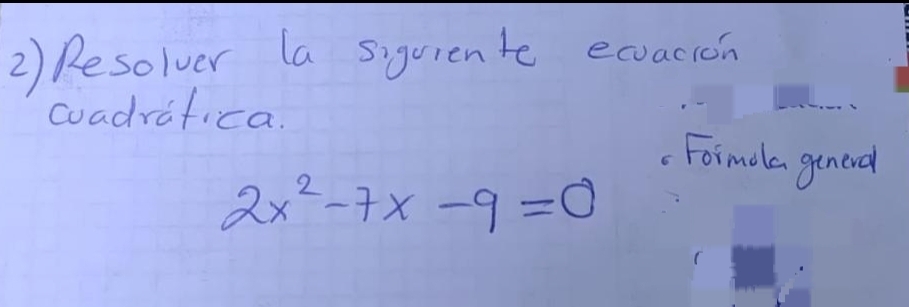 2) Resolver la siguiente ecuación
cuadrática.
• Fórmula general
2x²-7x-9=0